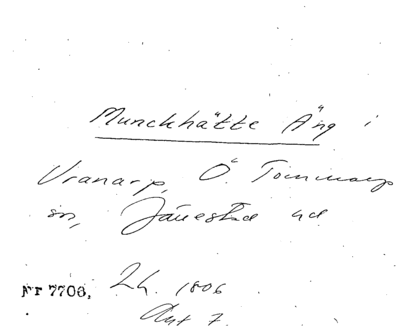 Munckhätte Äng i
Vranarp, Ö. Tommarp
sn, Järrestad hd
Nr 7706, Lh. 1806
Akt 7.